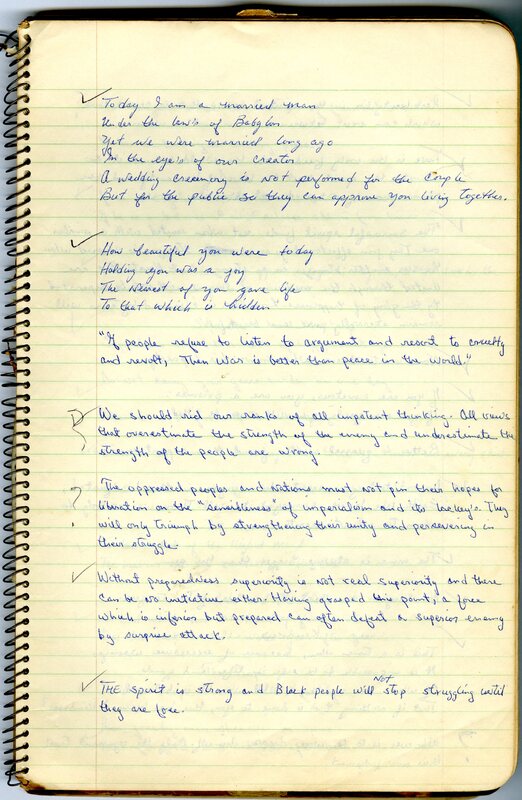 ✓ Today I am a married man
Under the law's of Babylon
Yet we were married long ago
In the eye's of our creator
A wedding creamony is not performed for the couple
But for the public so they can approve you living together.
✓ How beautiful you were today
Holding you was a joy
The newest of you gave life
To that which is hidden
"If people refuse to listen to argument and resort to cruelty
and revolt, Then War is better than peace in the world"
? We should rid our ranks of all impotent thinking. All views
that overestimate the strength of the enemy and underestimate the
strength of the people are wrong.
? The oppressed peoples and nations must not pin their hopes for
liberation on the "sensibleness" of imperialism and its lackey's. They
will only triumph by strengthening their unity and persevering in
their struggle.
✓ Without preparedness superiority is not real superiority and there
can be no initiative either. Having grasped this point, a force
which is inferior but prepared can often defeat a superior enemy
by surprise attack.
✓ THE spirit is strong and Black people will Not stop struggling until
they are free.